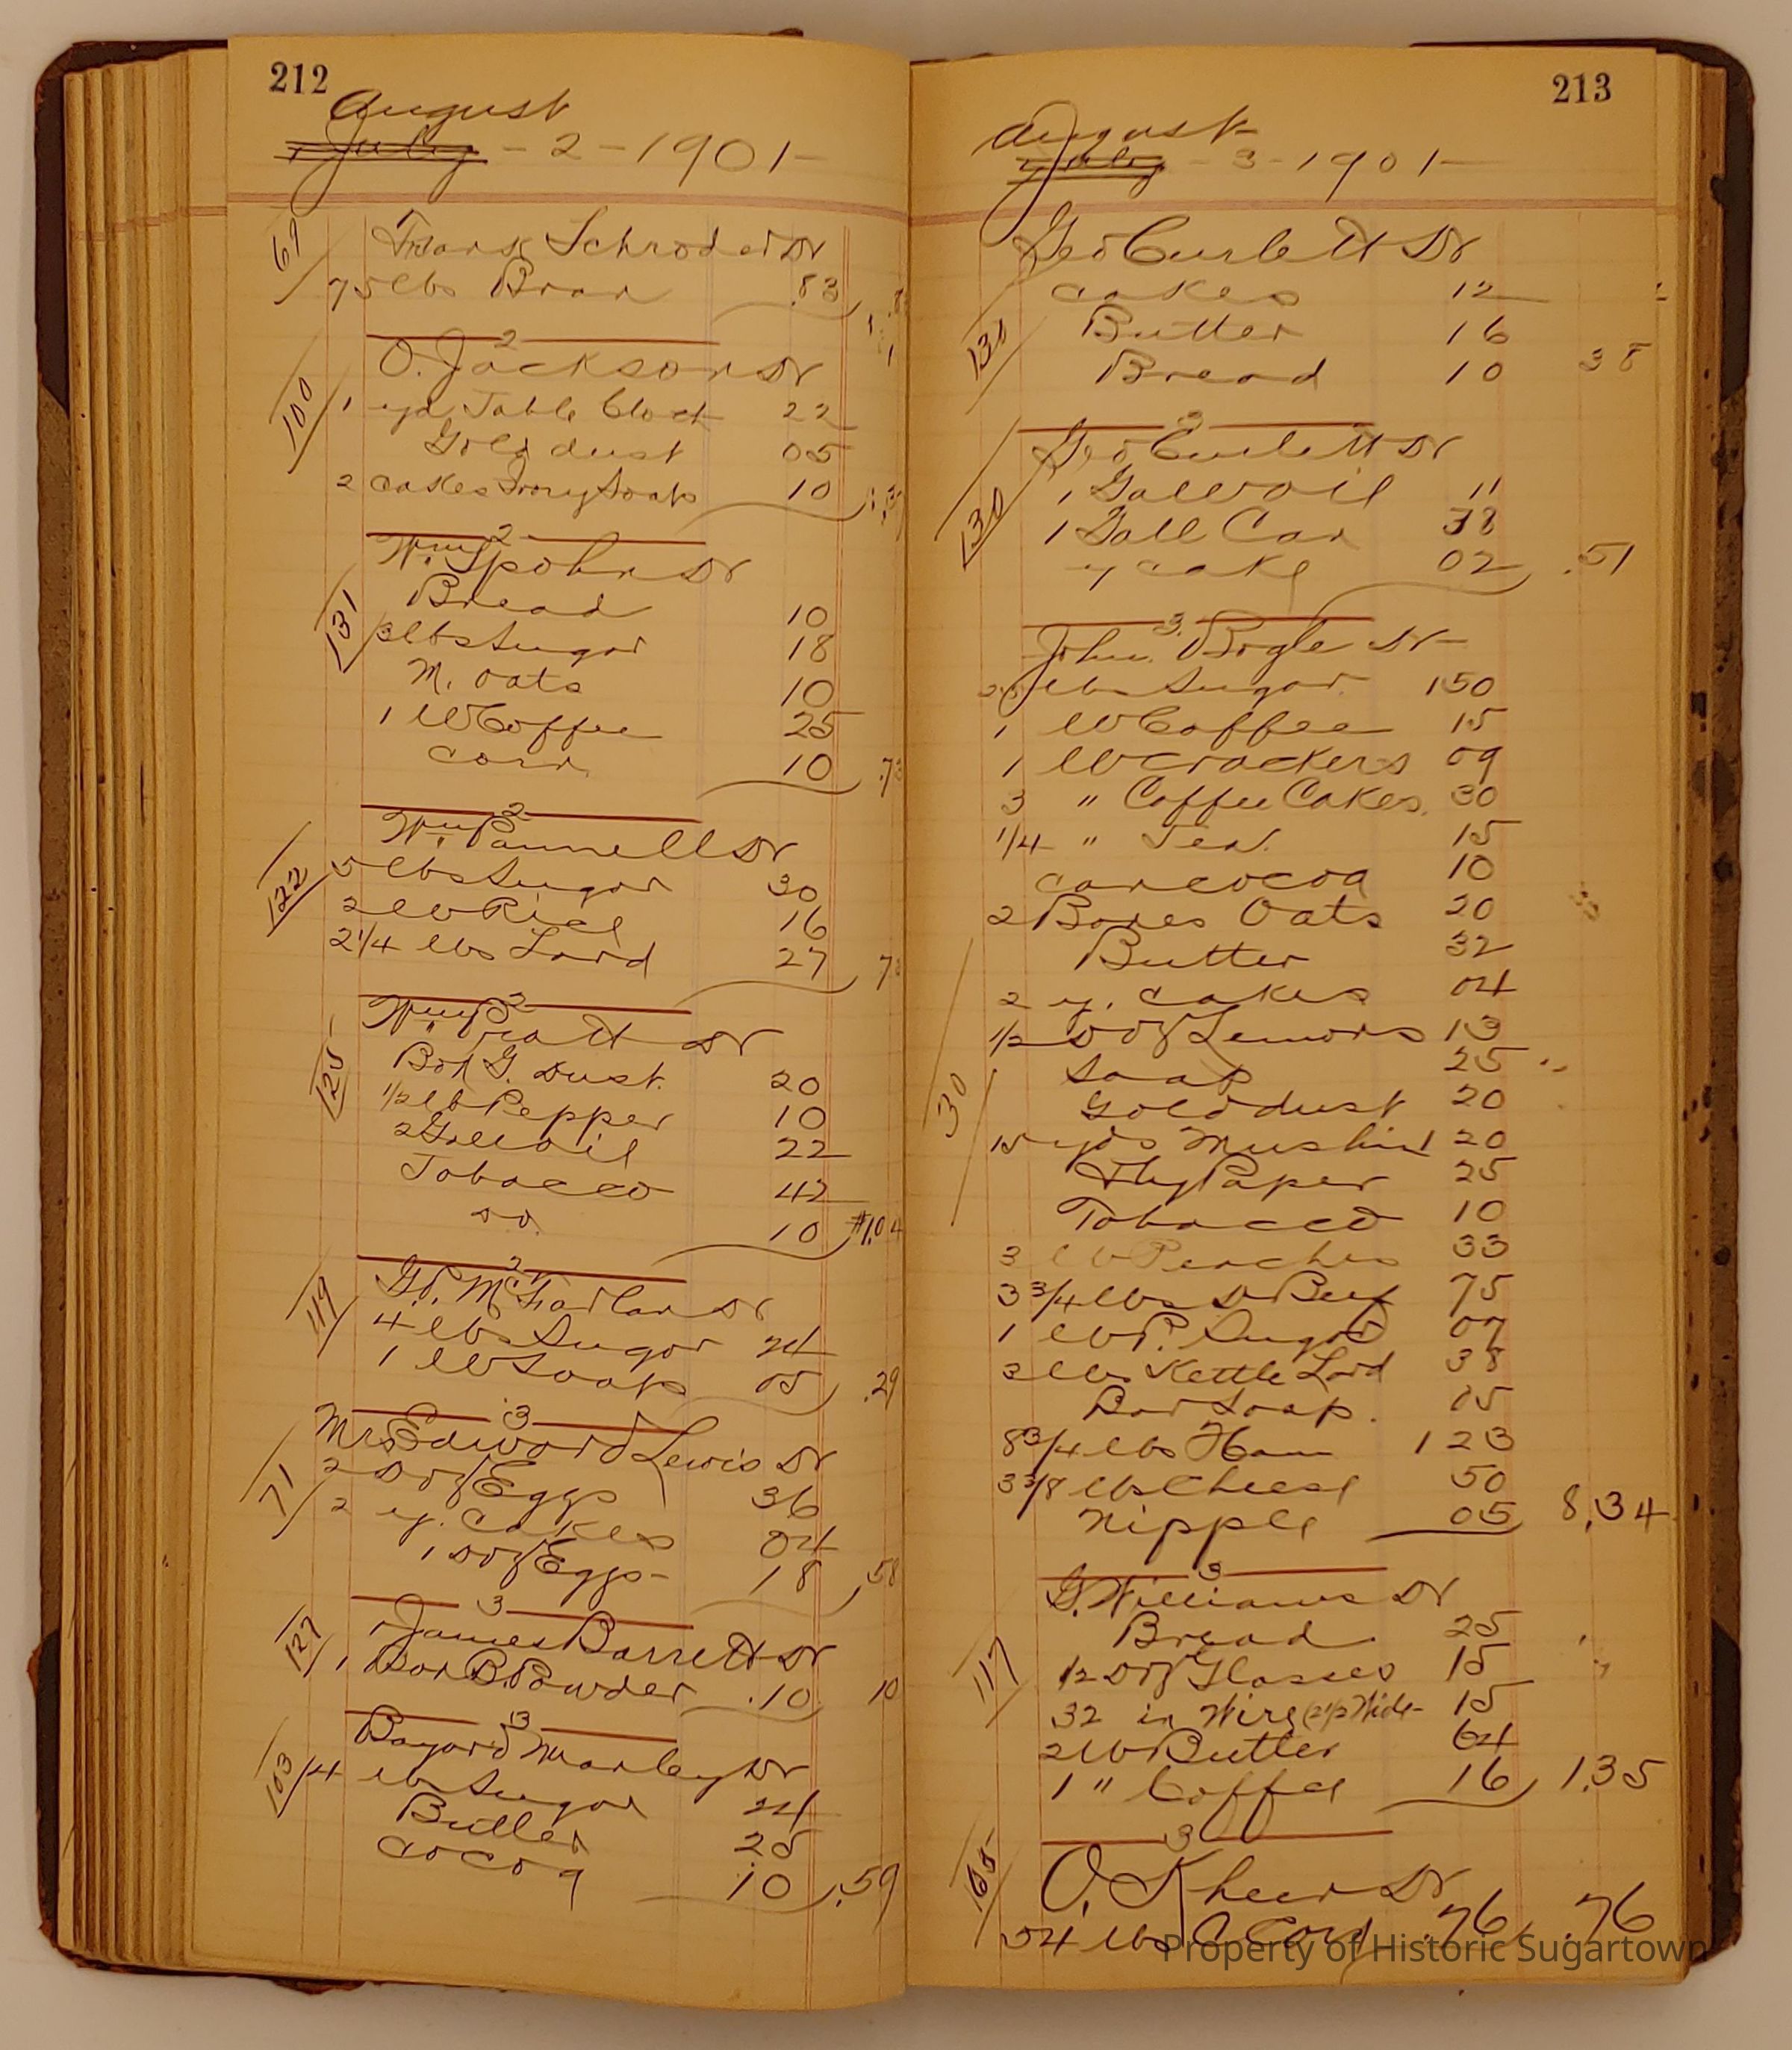 212
August
July - 2 - 1901 -
69
Frank Schroder Dr
75 lbs Bran .83
2
100
O. Jackson Dr
1 yd Table Cloth 22
Gold dust 05
2 cakes Ivory Soap 10
2
Wm. Spohn Dr
131
Bread 10
3 lbs Sugar 18
M. Oats 10
1 lb Coffee 25
Corn 10 .73
2
Wm. Pannell Dr
122
5 lbs Sugar 30
2 lb Rice 16
2 1/4 lbs Lard 27 73
2
Wm. Pratt Dr
125
Box G. Dust. 20
1/2 lb Pepper 10
2 Gall oil 22
Tobacco 42
do. 10 $1.04
2
119
G. P. McFarlan Dr
4 lbs Sugar 24
1 lb Soap 05 .29
3
Mrs Edward Lewis Dr
71
2 Doz Eggs 36
2 y. Cakes 04
1 Doz Eggs - 18 .58
3
127
James Barrett Dr
1 Box B. Powder .10 10
3
Bayard Marley Dr
103
4 lbs Sugar 24
Butter 25
Cocoa 10 .59
213
August
July - 3 - 1901 -
Geo Curlett Dr
Cakes 12
131
Butter 16
Bread 10 38
3
Geo Curlett Dr
130
1 Gall oil 11
1 Gall Can 38
y cake 02 .51
3.
John Bogle Dr -
25 lbs Sugar 150
1 lb Coffee 15
1 lb Crackers 09
3 " Coffee Cakes. 30
1/4 " Tea. 15
can cocoa 10
2 Boxes Oats 20
Butter 32
2 y. Cakes 04
1/2 Doz Lemons 13
30
Soap 25
Gold dust 20
yds Muslin 20
Fly Paper 25
Tobacco 10
3 lb Peaches 33
3 3/4 lbs D Beef 75
1 lb P. Sugar 07
3 lbs Kettle Lard 38
Bar Soap. 05
8 3/4 lbs Ham 123
3 3/8 lbs Cheese 50
Nipple 05 8.34
3
G. Williams Dr
Bread 25
117
1/2 Doz Glasses 15
32 in Wire Wide - 15
2 lb Butter 64
1 " Coffee 16 1.35
3
O. Kheer Dr
54 lbs C Corn .76 .76
Property of Historic Sugartown